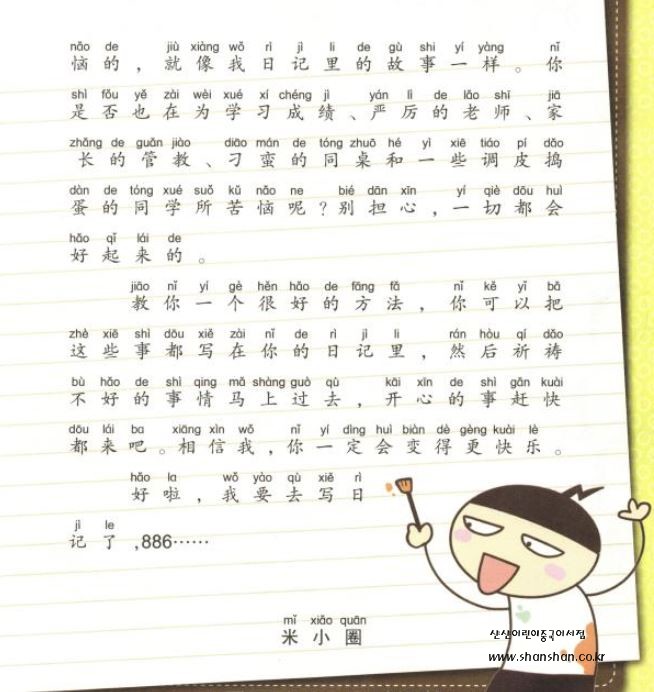 nǎo de jiù xiàng wǒ rì jì li de gù shi yí yàng nǐ
恼的，就像我日记里的故事一样。你
shì fǒu yě zài wèi xué xí chéng jì yán lì de lǎo shī jiā
是否也在为学习成绩、严厉的老师、家
zhǎng de guǎn jiào diāo mán de tóng zhuō hé yì xiē tiáo pí dǎo
长的管教、刁蛮的同桌和一些调皮捣
dàn de tóng xué suǒ kǔ nǎo ne bié dān xīn yí qiè dōu huì
蛋的同学所苦恼呢？别担心，一切都会
hǎo qǐ lái de
好起来的。
jiāo nǐ yí gè hěn hǎo de fāng fǎ nǐ kě yǐ bǎ
教你一个很好的方法，你可以把
zhè xiē shì dōu xiě zài nǐ de rì jì li rán hòu qí dǎo
这些事都写在你的日记里，然后祈祷
bù hǎo de shì qing mǎ shàng guò qù kāi xīn de shì gǎn kuài
不好的事情马上过去，开心的事赶快
dōu lái ba xiāng xìn wǒ nǐ yí dìng huì biàn dé gèng kuài lè
都来吧。相信我，你一定会变得更快乐。
hǎo la wǒ yào qù xiě rì
好啦，我要去写日
jì le
记了,886……
mǐ xiǎo quān
米小圈
산산어린이중국어서점
www.shanshan.co.kr